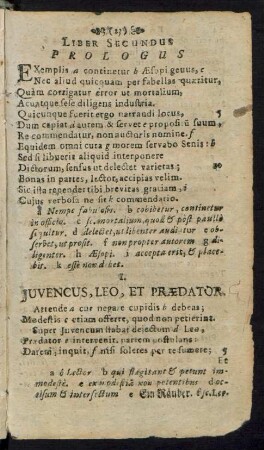 (27)
LIBER SECUNDUS
PROLOGUS
Exemplis a continetur b Æsopi genus, c
Nec aliud quicquam per fabellas quæritur,
Quàm corrigatur error ut mortalium,
Acuatque sese diligens industria.
Quicunque fuerit ergo narrandi locus, 5
Dum capiat d aurem & servet e propositũ suum,
Re commendatur, non auctoris nomine. f
Equidem omni cura g morem servabo Senis: h
Sed si libuerit aliquid interponere
Dictorum, sensus ut delectet varietas; 10
Bonas in partes, lector, accipias velim.
Sic ista rependet tibi brevitas gratiam, i
Cujus verbosa ne sit k commendatio.
a Nempe fabulosis. b cohibetur, continetur
in officio. c s. mortalium, quod & post paullò
sequitur. d delectet, ut libenter audiatur e ob-
servet, ut prosit. f non propter autorem g di-
ligenter. h Æsopi. i accepta erit, & place-
bit. k esse non debet.
I.
JUVENCUS, LEO, ET PRÆDATOR.
Attende a cur negare cupidis b debeas;
Modestis c etiam offerre, quod non petierint.
Super Juvencum stabat dejectum d Leo,
Prædator e intervenit, partem postulans:
Darem, inquit, f nisi soleres per te sumere; 5
Et
a ô lector b qui flagitant & petunt im-
modestè. c ex modestiâ non petentibus d oc-
cisum & interfectum e Ein Räuber. f sc. Leo.